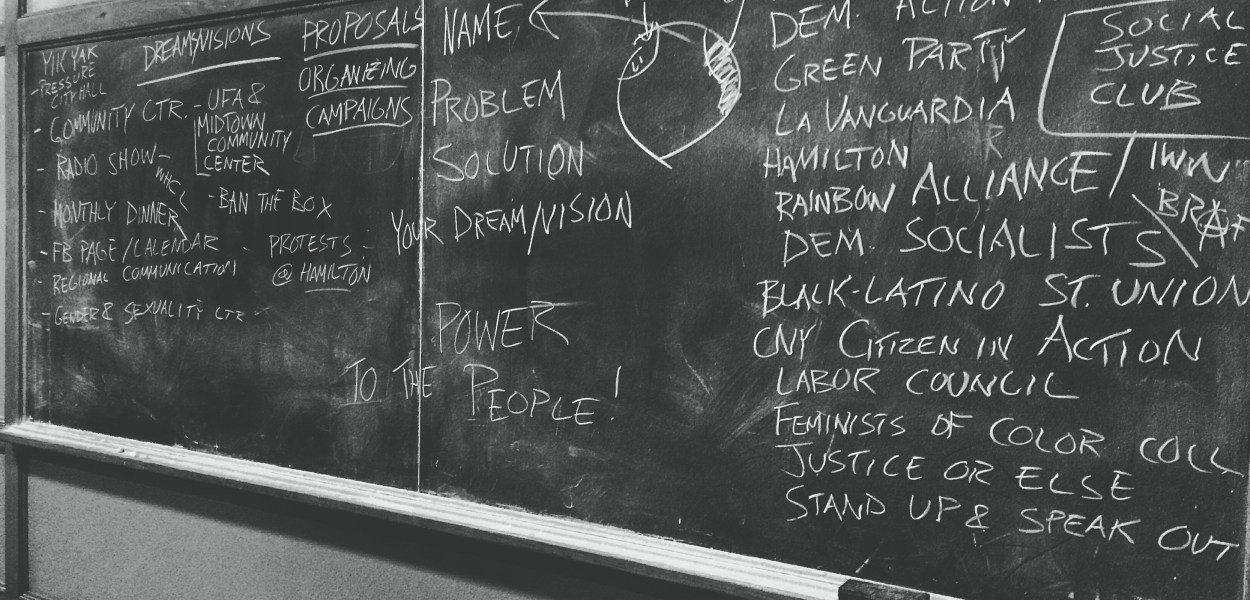 YIK YAK
- PRESSURE
CITY HALL
DREAMS/VISIONS
- COMMUNITY CTR.
- RADIO SHOW -
WHCL
- MONTHLY DINNER
- FB PAGE / CALENDAR -
- REGIONAL COMMUNICATION
- GENDER & SEXUALITY CTR -
- UFA &
MIDTOWN
COMMUNITY
CENTER
- BAN THE BOX
PROTESTS -
@ HAMILTON
PROPOSALS
ORGANIZING
CAMPAIGNS
NAME,
PROBLEM
SOLUTION
YOUR DREAM/VISION
POWER
TO THE PEOPLE!
DEM. ACTION
GREEN PARTY
LA VANGUARDIA
HAMILTON
RAINBOW ALLIANCE /
DEM. SOCIALISTS
BLACK-LATINO ST. UNION
CNY CITIZEN IN ACTION
LABOR COUNCIL
FEMINISTS OF COLOR COLL
JUSTICE OR ELSE
STAND UP & SPEAK OUT
SOCIAL
JUSTICE
CLUB